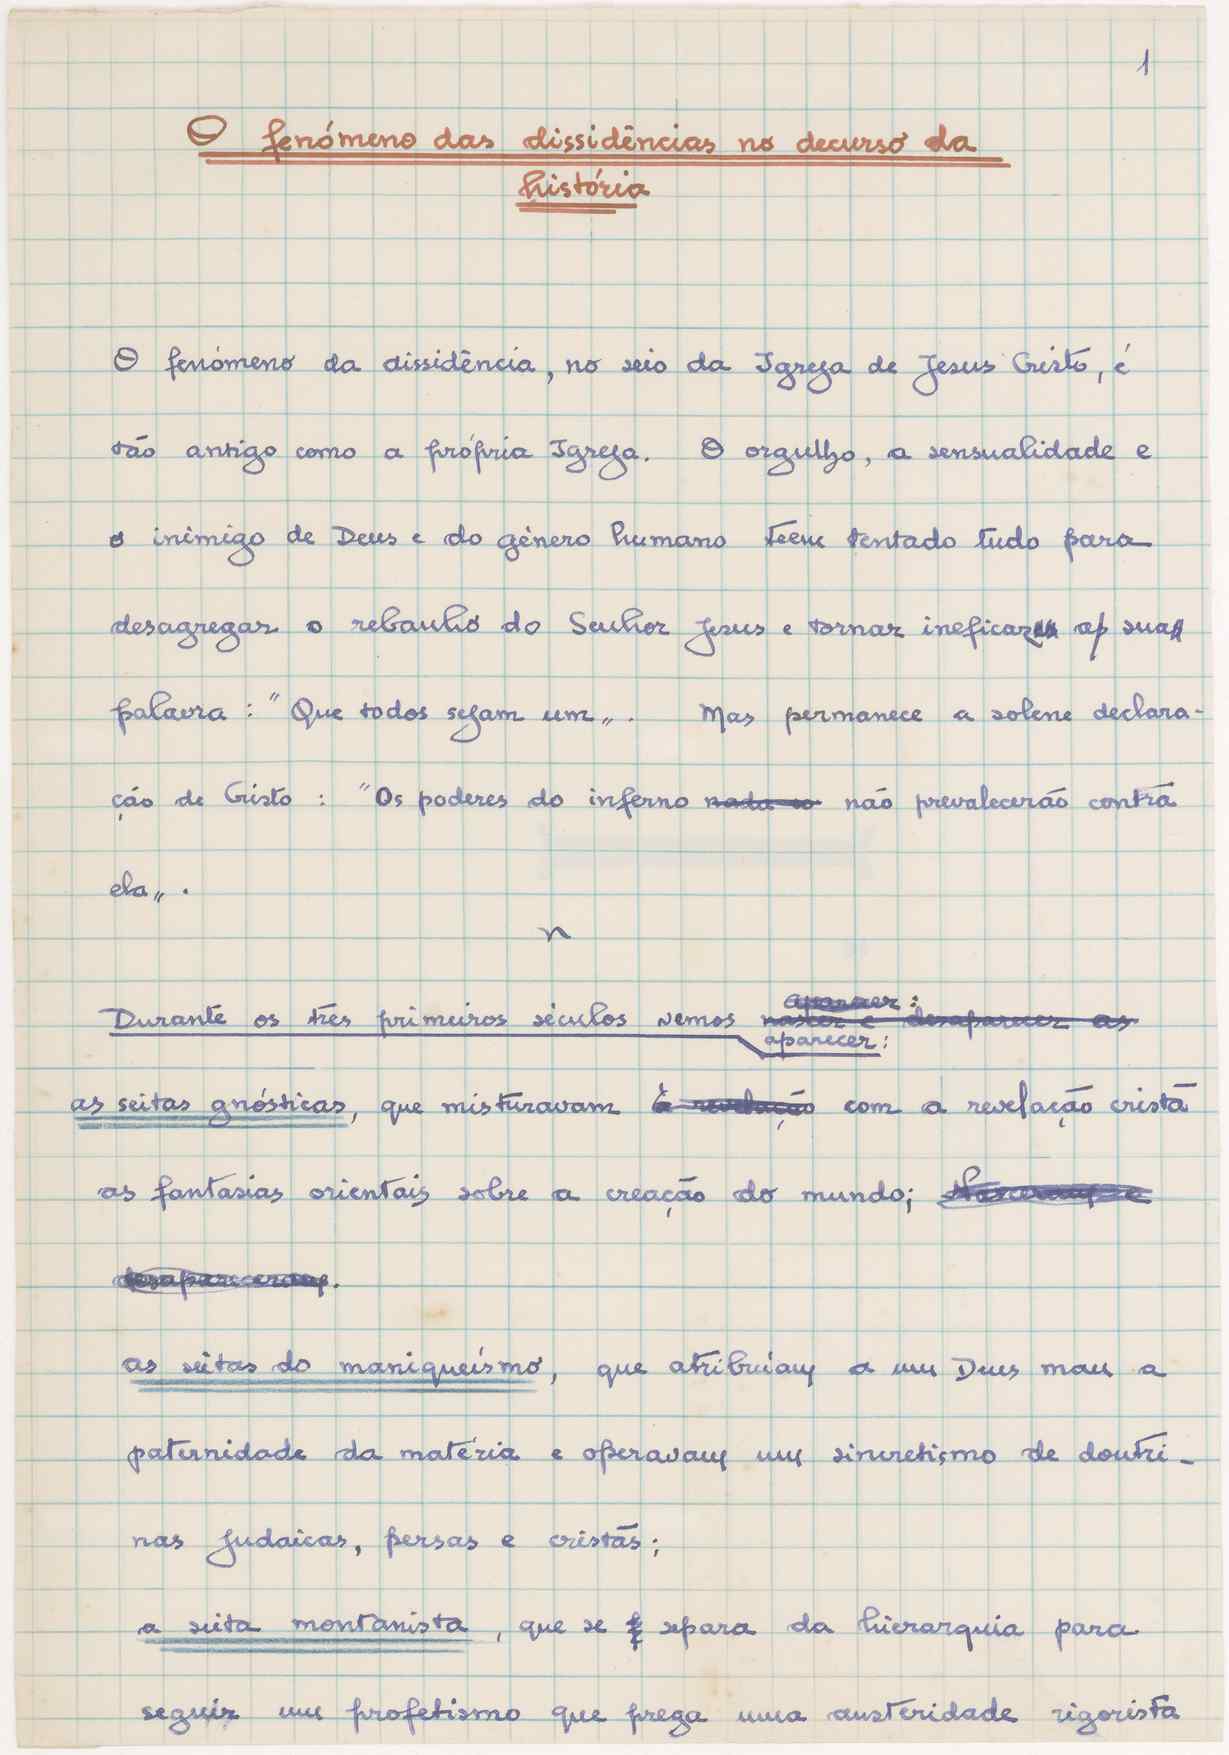 1
O fenómeno das dissidências no decurso da
história
O fenómeno da dissidência, no seio da Igreja de Jesus Cristo, é
tão antigo como a própria Igreja. O orgulho, a sensualidade e
o inimigo de Deus e do género humano teem tentado tudo para
desagregar o rebanho do Senhor Jesus e tornar ineficaz a sua
palavra : "Que todos sejam um„. Mas permanece a solene declara-
ção de Cristo : "Os poderes do inferno nada so não prevalecerão contra
ela„.
n
aparecer :
Durante os três primeiros séculos vemos nascer e desaparecer as
aparecer :
as seitas gnósticas, que misturavam à revelação com a revelação cristã
as fantasias orientais sobre a creação do mundo; Nasceram e
desapareceram.
as seitas do maniqueísmo, que atribuíam a um Deus mau a
paternidade da matéria e operavam um sincretismo de doutri-
nas judaicas, persas e cristãs;
a seita montanista, que se separa da hierarquia para
seguir um profetismo que prega uma austeridade rigorista